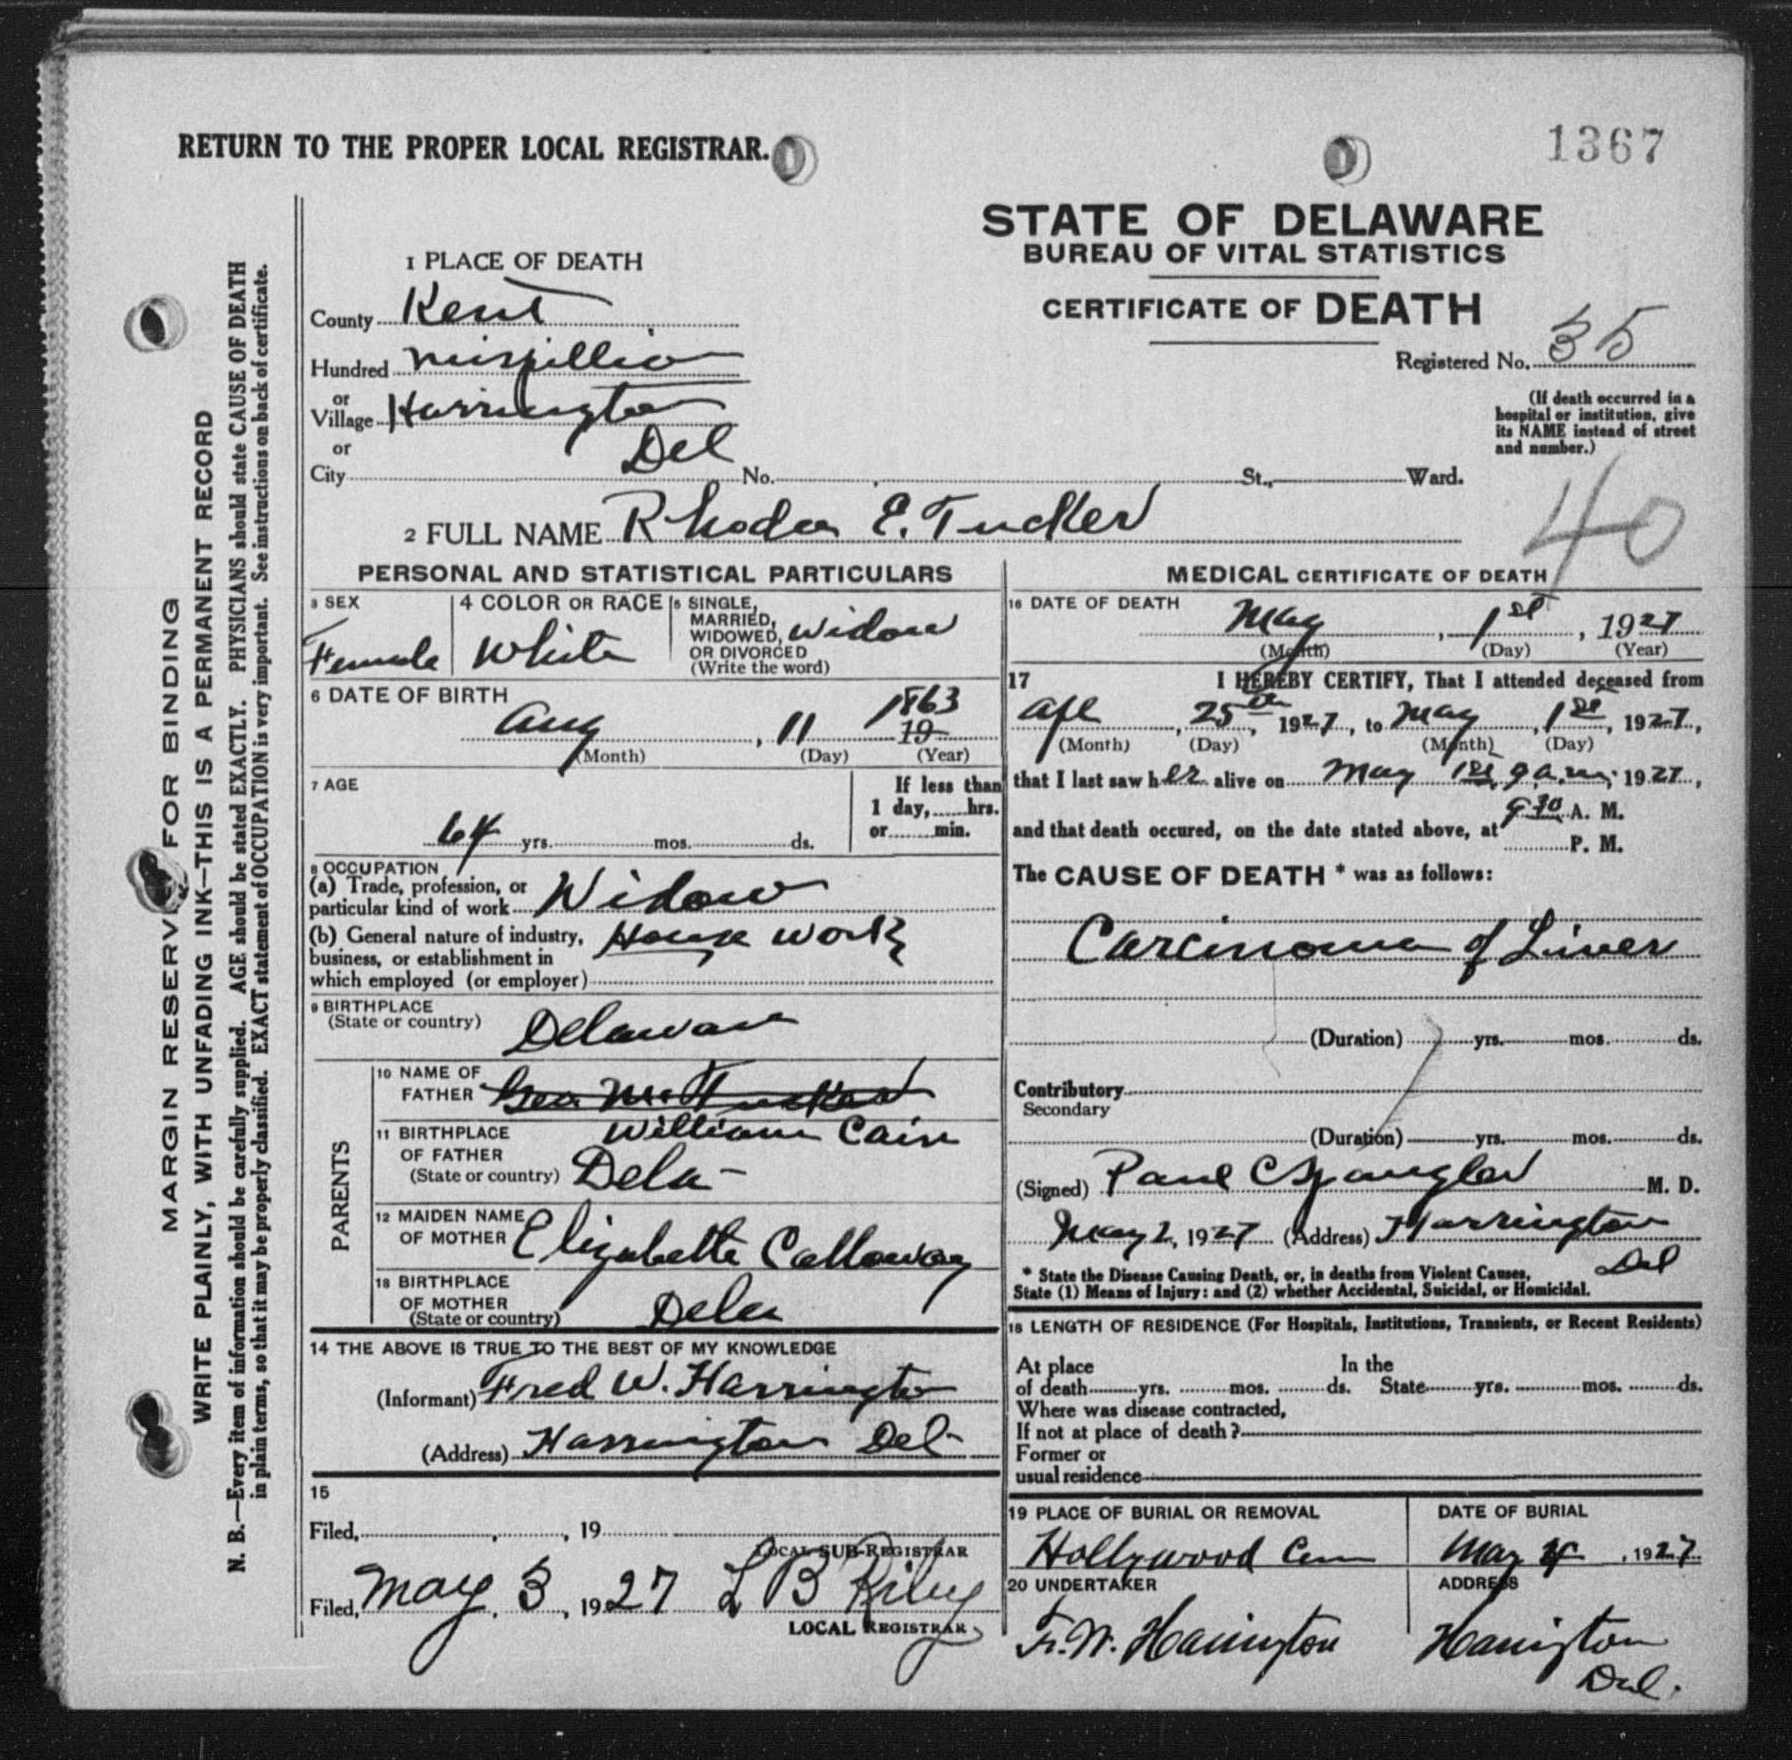 RETURN TO THE PROPER LOCAL REGISTRAR.
1367
MARGIN RESERVED FOR BINDING
WRITE PLAINLY, WITH UNFADING INK—THIS IS A PERMANENT RECORD
N. B.—Every item of information should be carefully supplied. AGE should be stated EXACTLY. PHYSICIANS should state CAUSE OF DEATH
in plain terms, so that it may be properly classified. EXACT statement of OCCUPATION is very important. See instructions on back of certificate.
STATE OF DELAWARE
BUREAU OF VITAL STATISTICS
CERTIFICATE OF DEATH
Registered No. 35
(If death occurred in a
hospital or institution, give
its NAME instead of street
and number.)
40
1 PLACE OF DEATH
County Kent
Hundred Mispillion
or
Village Harrington
or Del
City No. St., Ward.
2 FULL NAME Rhoda E. Tucker
PERSONAL AND STATISTICAL PARTICULARS
3 SEX
Female
4 COLOR OR RACE
White
5 SINGLE,
MARRIED,
WIDOWED,
OR DIVORCED
(Write the word)
Widow
6 DATE OF BIRTH
Aug , 11 1863
19
(Month) (Day) (Year)
7 AGE
64 yrs. mos. ds.
If less than
1 day, hrs.
or min.
8 OCCUPATION
(a) Trade, profession, or
particular kind of work Widow
(b) General nature of industry,
business, or establishment in
which employed (or employer)
House work
9 BIRTHPLACE
(State or country) Delaware
PARENTS
10 NAME OF
FATHER Geo. M. Tucker
William Cain
11 BIRTHPLACE
OF FATHER
(State or country) Dela-
12 MAIDEN NAME
OF MOTHER Elizabeth Calloway
13 BIRTHPLACE
OF MOTHER
(State or country) Dela
14 THE ABOVE IS TRUE TO THE BEST OF MY KNOWLEDGE
(Informant) Fred W. Harrington
(Address) Harrington Del-
15
Filed, , , 19
LOCAL SUB-REGISTRAR
Filed, May 3, 1927 L B Riley
LOCAL REGISTRAR
MEDICAL CERTIFICATE OF DEATH
16 DATE OF DEATH
May , 1st , 1927
(Month) (Day) (Year)
17 I HEREBY CERTIFY, That I attended deceased from
Apl , 25th , 1927, to May , 1st , 1927,
(Month) (Day) (Month) (Day)
that I last saw her alive on May 1st 9 a.m. 1927,
and that death occured, on the date stated above, at 9 30 A. M.
P. M.
The CAUSE OF DEATH * was as follows:
Carcinoma of Liver
(Duration) yrs. mos. ds.
Contributory
Secondary
(Duration) yrs. mos. ds.
(Signed) Paul C Spangler M. D.
May 2, 1927 (Address) Harrington
Del
* State the Disease Causing Death, or, in deaths from Violent Causes,
State (1) Means of Injury: and (2) whether Accidental, Suicidal, or Homicidal.
18 LENGTH OF RESIDENCE (For Hospitals, Institutions, Transients, or Recent Residents)
At place
of death yrs. mos. ds.
In the
State yrs. mos. ds.
Where was disease contracted,
If not at place of death?
Former or
usual residence
19 PLACE OF BURIAL OR REMOVAL
Hollywood Cem
DATE OF BURIAL
May 4, 1927
20 UNDERTAKER
Fr. W. Harrington
ADDRESS
Harrington
Del.